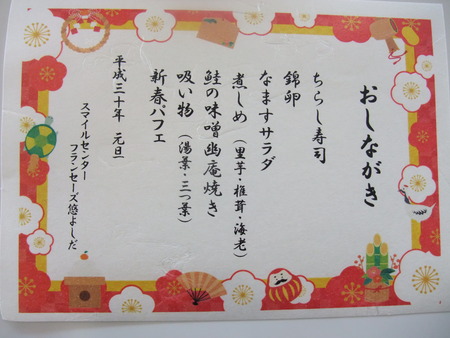 おしながき
ちらし寿司
錦卵
なますサラダ
煮しめ（里芋・椎茸・海老）
鮭の味噌幽庵焼き
吸い物（湯葉・三つ葉）
新春パフェ
平成三十年 元旦
スマイルセンター
フランセーズ悠よしだ